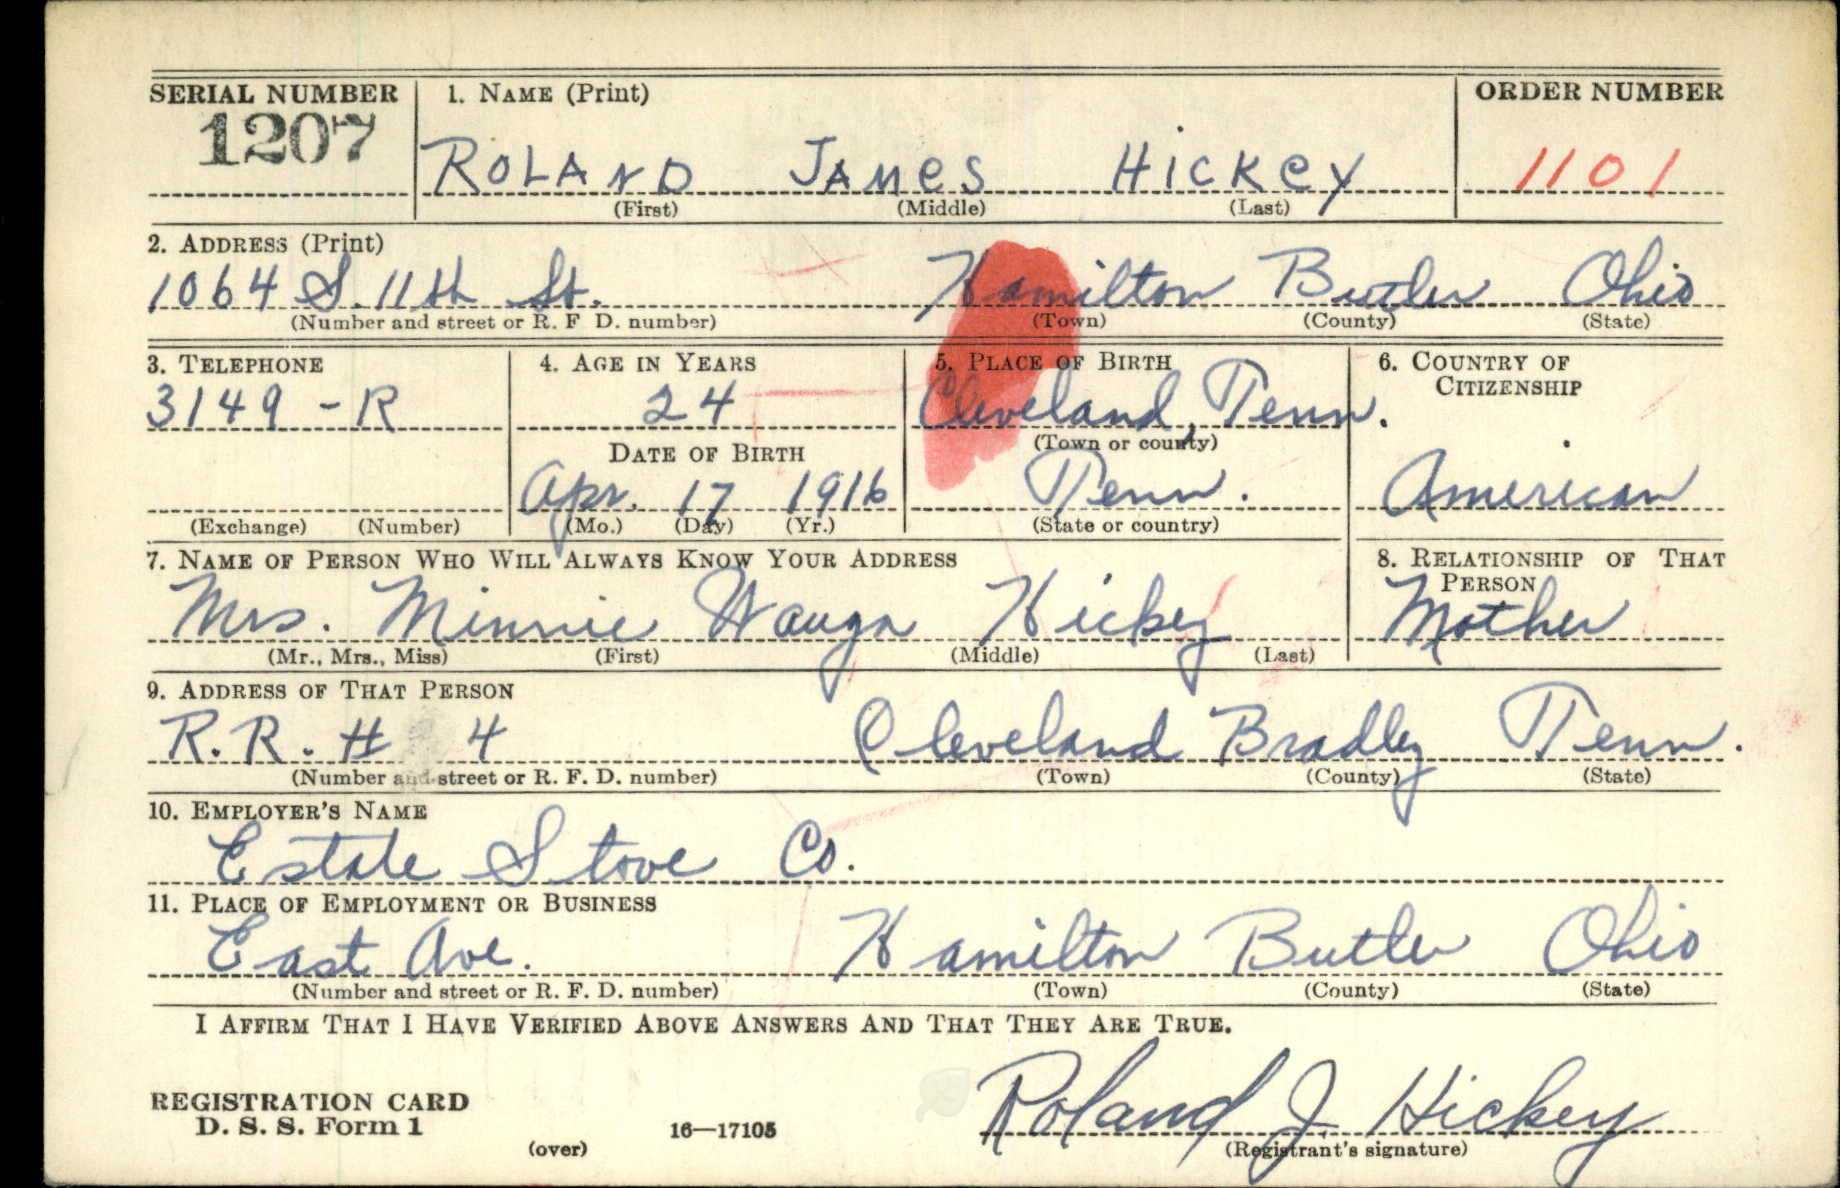 SERIAL NUMBER
1207
1. NAME (Print)
ROLAND JAMES HICKEY
(First) (Middle) (Last)
ORDER NUMBER
1101
2. ADDRESS (Print)
1064 S. 11th St. Hamilton Butler Ohio
(Number and street or R. F D. number) (Town) (County) (State)
3. TELEPHONE
3149-R
(Exchange) (Number)
4. AGE IN YEARS
24
DATE OF BIRTH
Apr. 17 1916
(Mo.) (Day) (Yr.)
5. PLACE OF BIRTH
Cleveland, Tenn.
(Town or county)
Tenn.
(State or country)
6. COUNTRY OF
CITIZENSHIP
American
7. NAME OF PERSON WHO WILL ALWAYS KNOW YOUR ADDRESS
Mrs. Minnie Hickey
(Mr., Mrs., Miss) (First) (Middle) (Last)
8. RELATIONSHIP OF THAT
PERSON
Mother
9. ADDRESS OF THAT PERSON
R.R. # 4 Cleveland Bradley Tenn.
(Number and street or R. F. D. number) (Town) (County) (State)
10. EMPLOYER'S NAME
Estate Stove Co.
11. PLACE OF EMPLOYMENT OR BUSINESS
East Ave. Hamilton Butler Ohio
(Number and street or R. F. D. number) (Town) (County) (State)
I AFFIRM THAT I HAVE VERIFIED ABOVE ANSWERS AND THAT THEY ARE TRUE.
REGISTRATION CARD
D. S. S. Form 1
(over)
16—17105
Roland J. Hickey
(Registrant's signature)